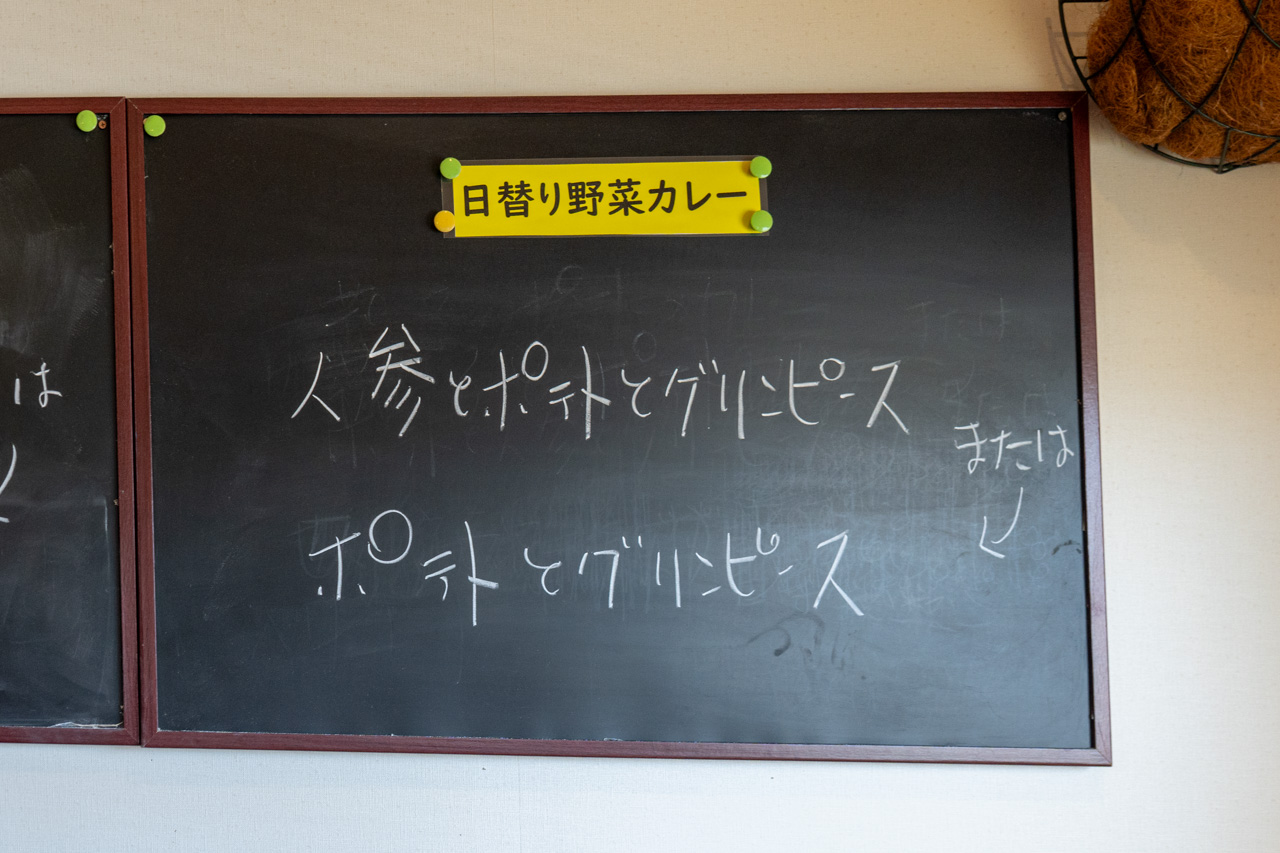 日替り野菜カレー
人参とポテトとグリンピース
または
ポテトとグリンピース
は